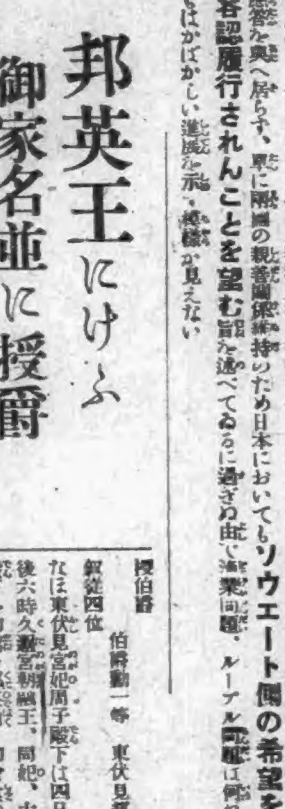 答を与へ居らず、単に両国の親善関係維持のため日本においてもソウエート側の希望を
容認履行されんことを望む旨を述べてゐるに過ぎぬ由で漁業問題、ルーブル問題は何
はかばかしい進展を示す模様が見えない
邦英王にけふ
御家名並に授爵
授伯爵
伯爵勲一等 東伏見
叙従四位
なほ東伏見宮妃周子殿下は四日
後六時久邇宮朝融王、同妃、